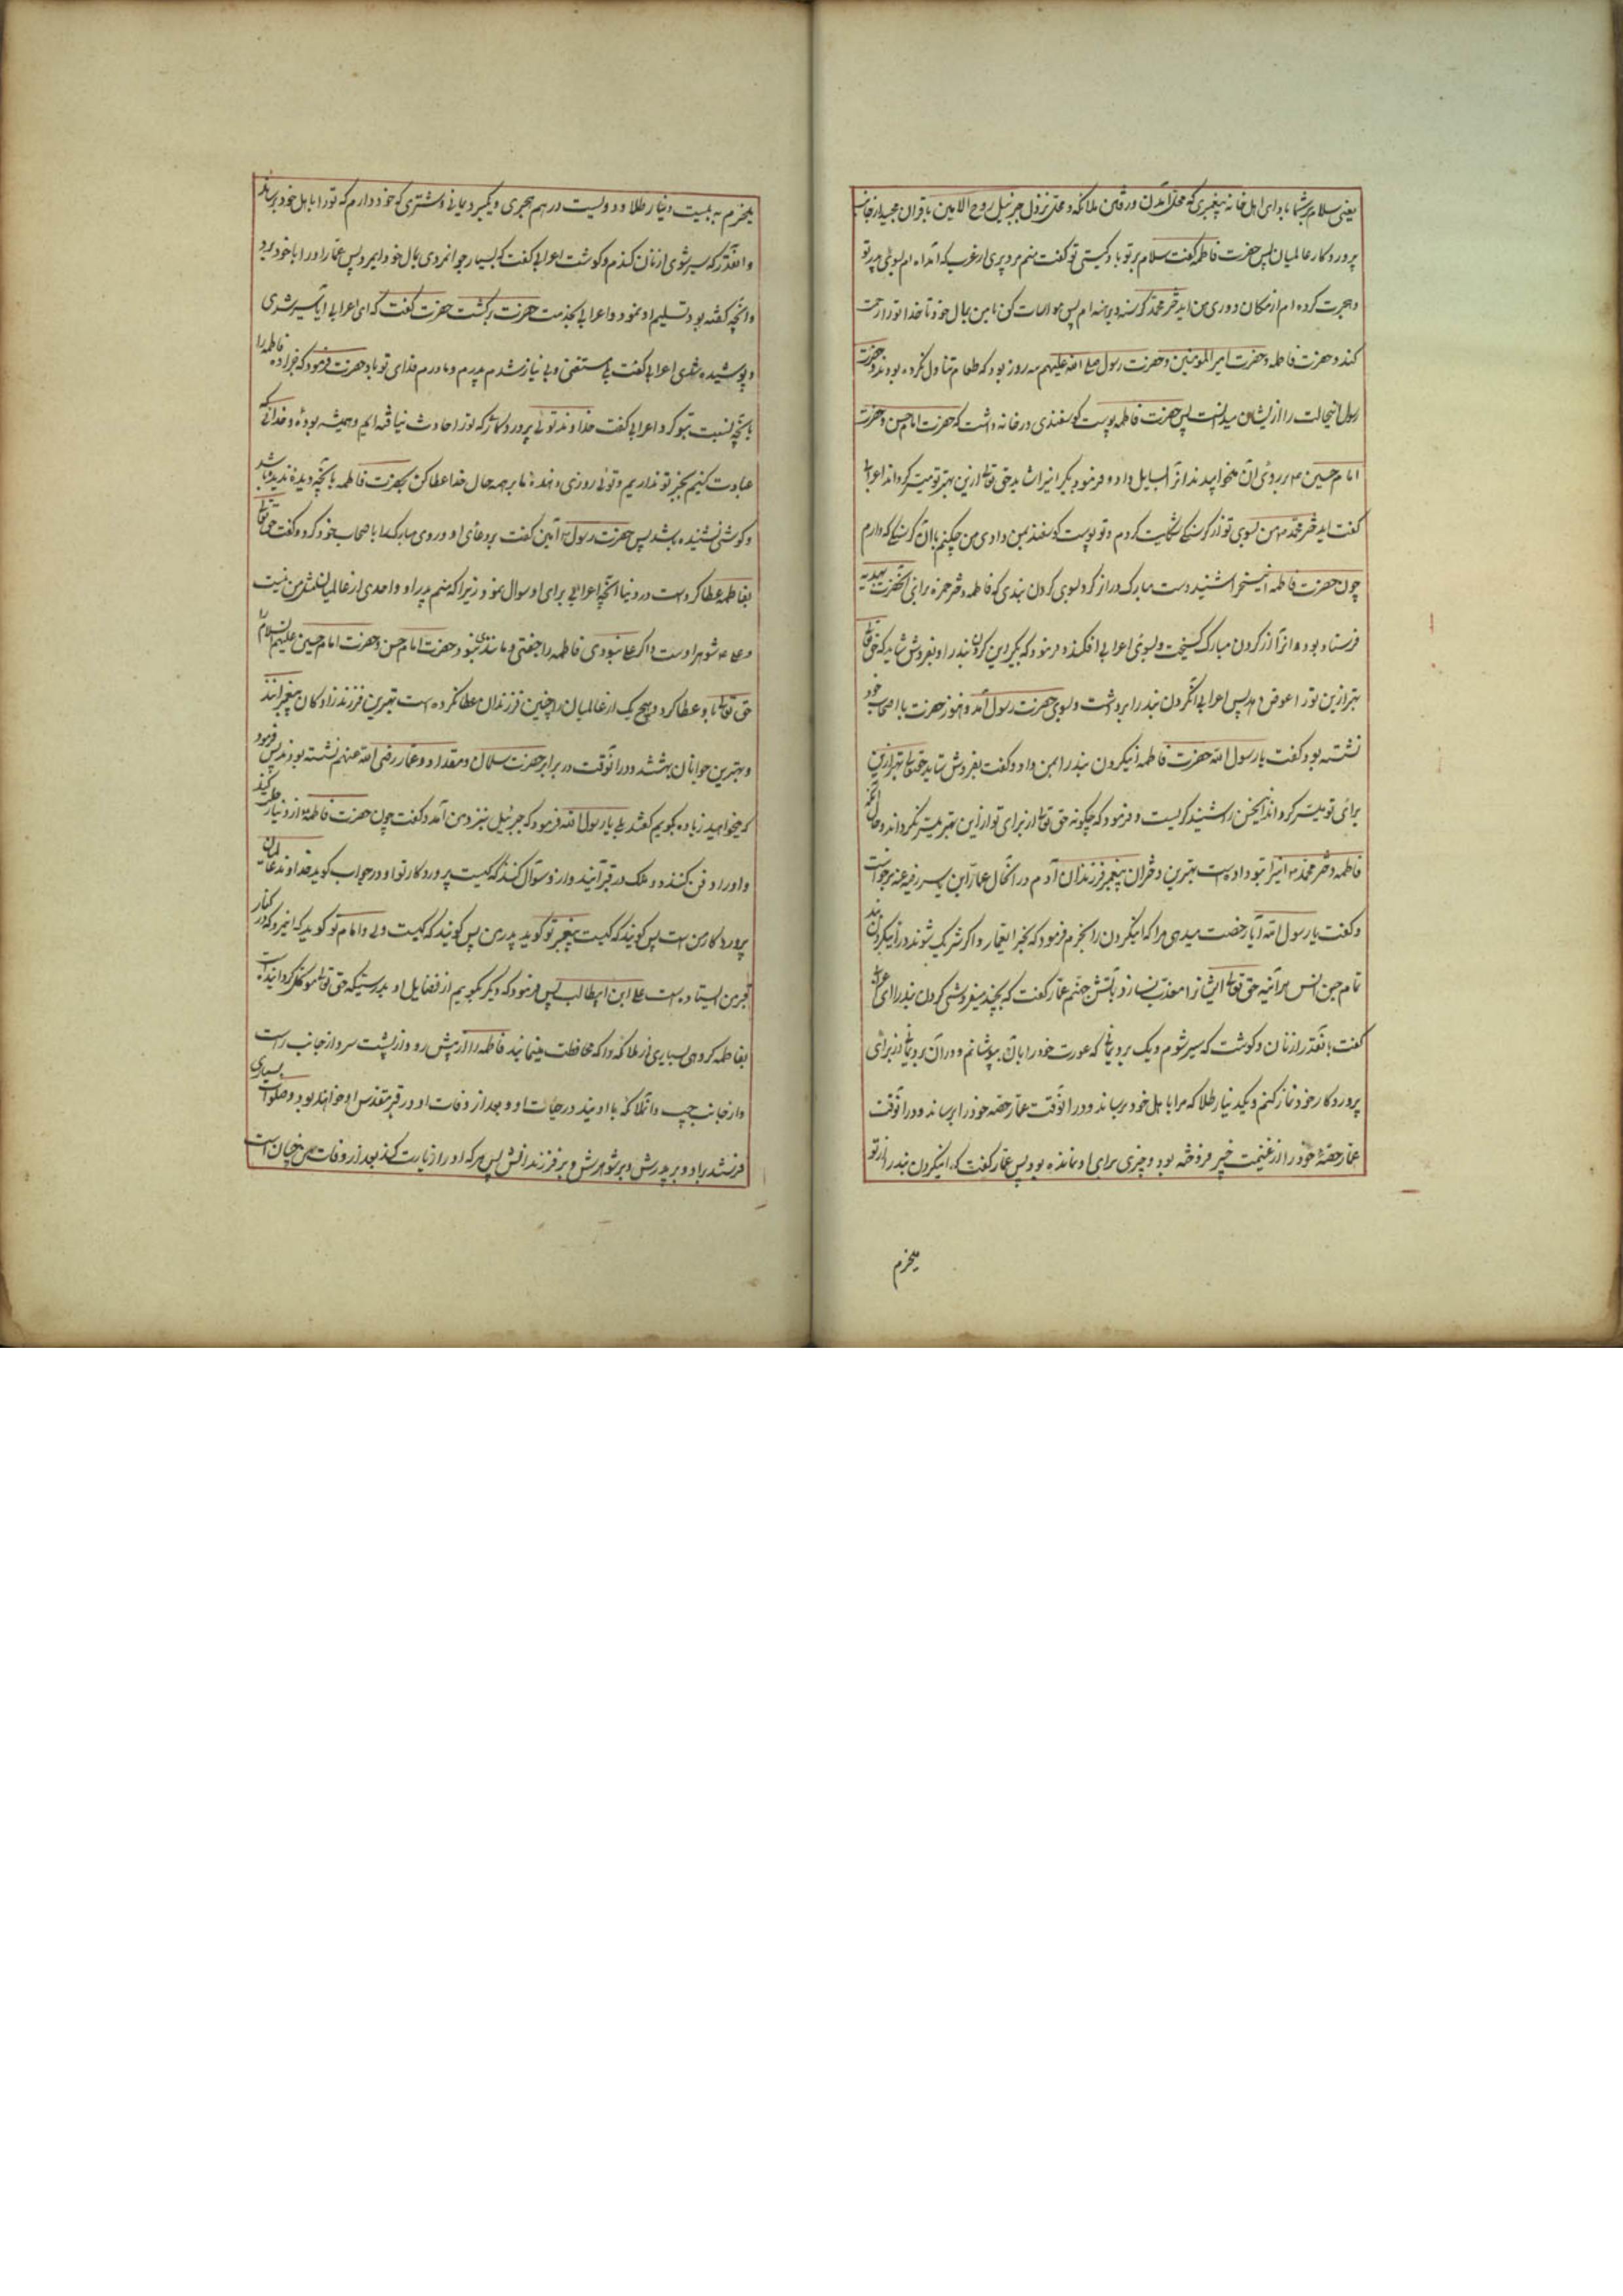 یعنی سلام بر شما باد ای اهل خانه پیغمبری که محل آمدن و رفتن ملائکه و محل نزول جبرئیل روح الامین با قران مجید از جانب
پروردکار عالمیان پس حضرت فاطمه کفت سلام بر تو باد کیستی تو کفت منم مرد پیری از عرب که آمده ام بسوی پدر تو
و هجرت کرده ام از مکان دوری من ایدختر محمد کرسنه و برهنه ام پس مواسات کن با من بمال خود تا خدا تو را رحمت
کند و حضرت فاطمه و حضرت امیر المومنین و حضرت رسول صلی الله علیهم سه روز بود که طعام تناول نکرده بودند و حضرت
رسول اینحالت را از ایشان میدانست پس حضرت فاطمه پوست کوسفندی در خانه داشت که حضرت امام حسن و حضرت
امام حسین بر روی آن میخوابیدند انرا بسایل داد و فرمود بکیر اینرا شاید حق تعالی ازین بهتر تو میسر کرداند اعرابی
کفت ایدختر محمد من بسوی تو از کرسنکی شکایت کردم و تو پوست کوسفند بمن دادی من چکنم با آن کرسنکی که دارم
چون حضرت فاطمه اینسخن را شنید دست مبارک دراز کرد بسوی کردن بندی که فاطمه دختر حمزه برای آنحضرت بهدیه
فرستاده بود و انرا از کردن مبارک کسیخت و بسوی اعرابی افکند و فرمود که بکیر این کردن بند را و بفروش شاید که حق تعالی
بهتر ازین تو را عوض دهد پس اعرابی آنکردن بند را برداشت و بسوی حضرت رسول آمد و هنوز حضرت با اصحاب خود
نشسته بود و کفت یا رسول الله حضرت فاطمه اینکردن بند را بمن داد و کفت بفروش شاید حق تعالی بهتر ازین
برای تو میسر کرداند اینسخن را شنید کریست و فرمود که چکونه حق تعالی از برای تو از این بهتر میسر نکرداند و حال آنکه
فاطمه دختر محمد اینرا بتو داده است بهترین دختران پیغمبر فرزندان آدم در انحال عمار ابن یاسر رضی الله عنه برخواست
و کفت یا رسول الله آیا رخصت میدهی مرا که اینکردن را بخرم فرمود که بخر ایعمار و اکر شریک شوند در اینکردن بند
تمام جن انس هر آینه حق تعالی ایشانرا معذب نسازد بآتش جهنم عمار کفت که بچند میفروشی کردن بند را ای اعرابی
کفت بآنقدر از نان و کوشت که سیر شوم و یک برد یمانی که عورت خود را بآن بپوشانم و در آن برد نماز از برای
پروردکار خود نماز کنم و یکدینار طلا که مرا باهل خود برساند و در انوقت عمار حصه خود را
عمار حصه خود را از غنیمت خیبر فروخته بود و چیزی برای او نمانده بود پس عمار کفت که اینکردن بند را از تو
میخرم
میخرم به بیست دینار طلا و دویست درهم هجری و یکبرد یمانی و شتری که خود دارم که تو را باهل خود برساند
و آنقدر که سیر شوی از نان کندم و کوشت اعرابی کفت که بسیار جوانمردی بمال خود ایمرد پس عمار او را با خود برد
و آنچه کفته بود تسلیم او نمود و اعرابی بخدمت حضرت برکشت حضرت کفت که ای اعرابی ایا سیر شدی
و پوشیده شدی اعرابی کفت بلی مستغنی و بی نیاز شدم پدرم و مادرم فدای تو باد حضرت فرمود که جزا ده فاطمه را
بآنچه نسبت بتو کرد اعرابی کفت خداوندا تویی پروردکار ما که تو را حادث نیافته ایم و همیشه بوده و خدایی که
عبادت کنیم بجز تو نداریم و تویی روزی دهنده ما بر همه حال خدا عطا کن بحضرت فاطمه بآنچه دیده ندیده باشد
و کوشی نشنیده باشد پس حضرت رسول آمین کفت بر دعای او و روی مبارک را باصحاب خود کرد و کفت حق تعالی
بفاطمه عطا کرده است در دنیا آنچه اعرابی برای او سوال نمود زیرا که منم پدر او و احدی از عالمیان مثل من نیست
و علی شوهر اوست و اکر علی نبودی فاطمه را جفتی و مانندی نبود و حضرت امام حسن و حضرت امام حسین علیهم السلام را
حق تعالی باو عطا کرد و هیچ یک از عالمیان را چنین فرزندان عطا نکرده است بهترین فرزند زادکان پیغمبرانند
و بهترین جوانان بهشتند و در آنوقت در برابر حضرت سلمان و مقداد و عمار رضی الله عنهم نشسته بودند پس فرمود
که میخواهید زیاده بکویم کفتند بلی یا رسول الله فرمود که جبرئیل بنزد من آمد و کفت چون حضرت فاطمه از دنیا رحلت کند
و او را دفن کنند دو ملک در قبر آیند و از او سوال کنند که کیست پروردکار تو او در جواب کوید خداوند عالمیان
پروردکار من است پس کویند که کیست پیغمبر تو کوید پدر من پس کویند که کیست ولی و امام تو کوید که اینمرد که در کنار
قبر من ایستاده است علی ابن ابیطالب پس فرمود که دیکر بکویم از فضایل او بدرستیکه حق تعالی موکل کردانیده است
بفاطمه کروهی بسیاری از ملائکه را که محافظت مینمایند فاطمه را از پیش رو و از پشت سر و از جانب راست
و از جانب چپ و انملائکه با اویند در حیات او و بعد از وفات او در قبر مقدس او خواهند بود و صلوات بسیاری
فرستند بر او و بر پدرش و بر شوهرش و بر فرزندانش پس هر که او را زیارت کند بعد از وفات من چنان است